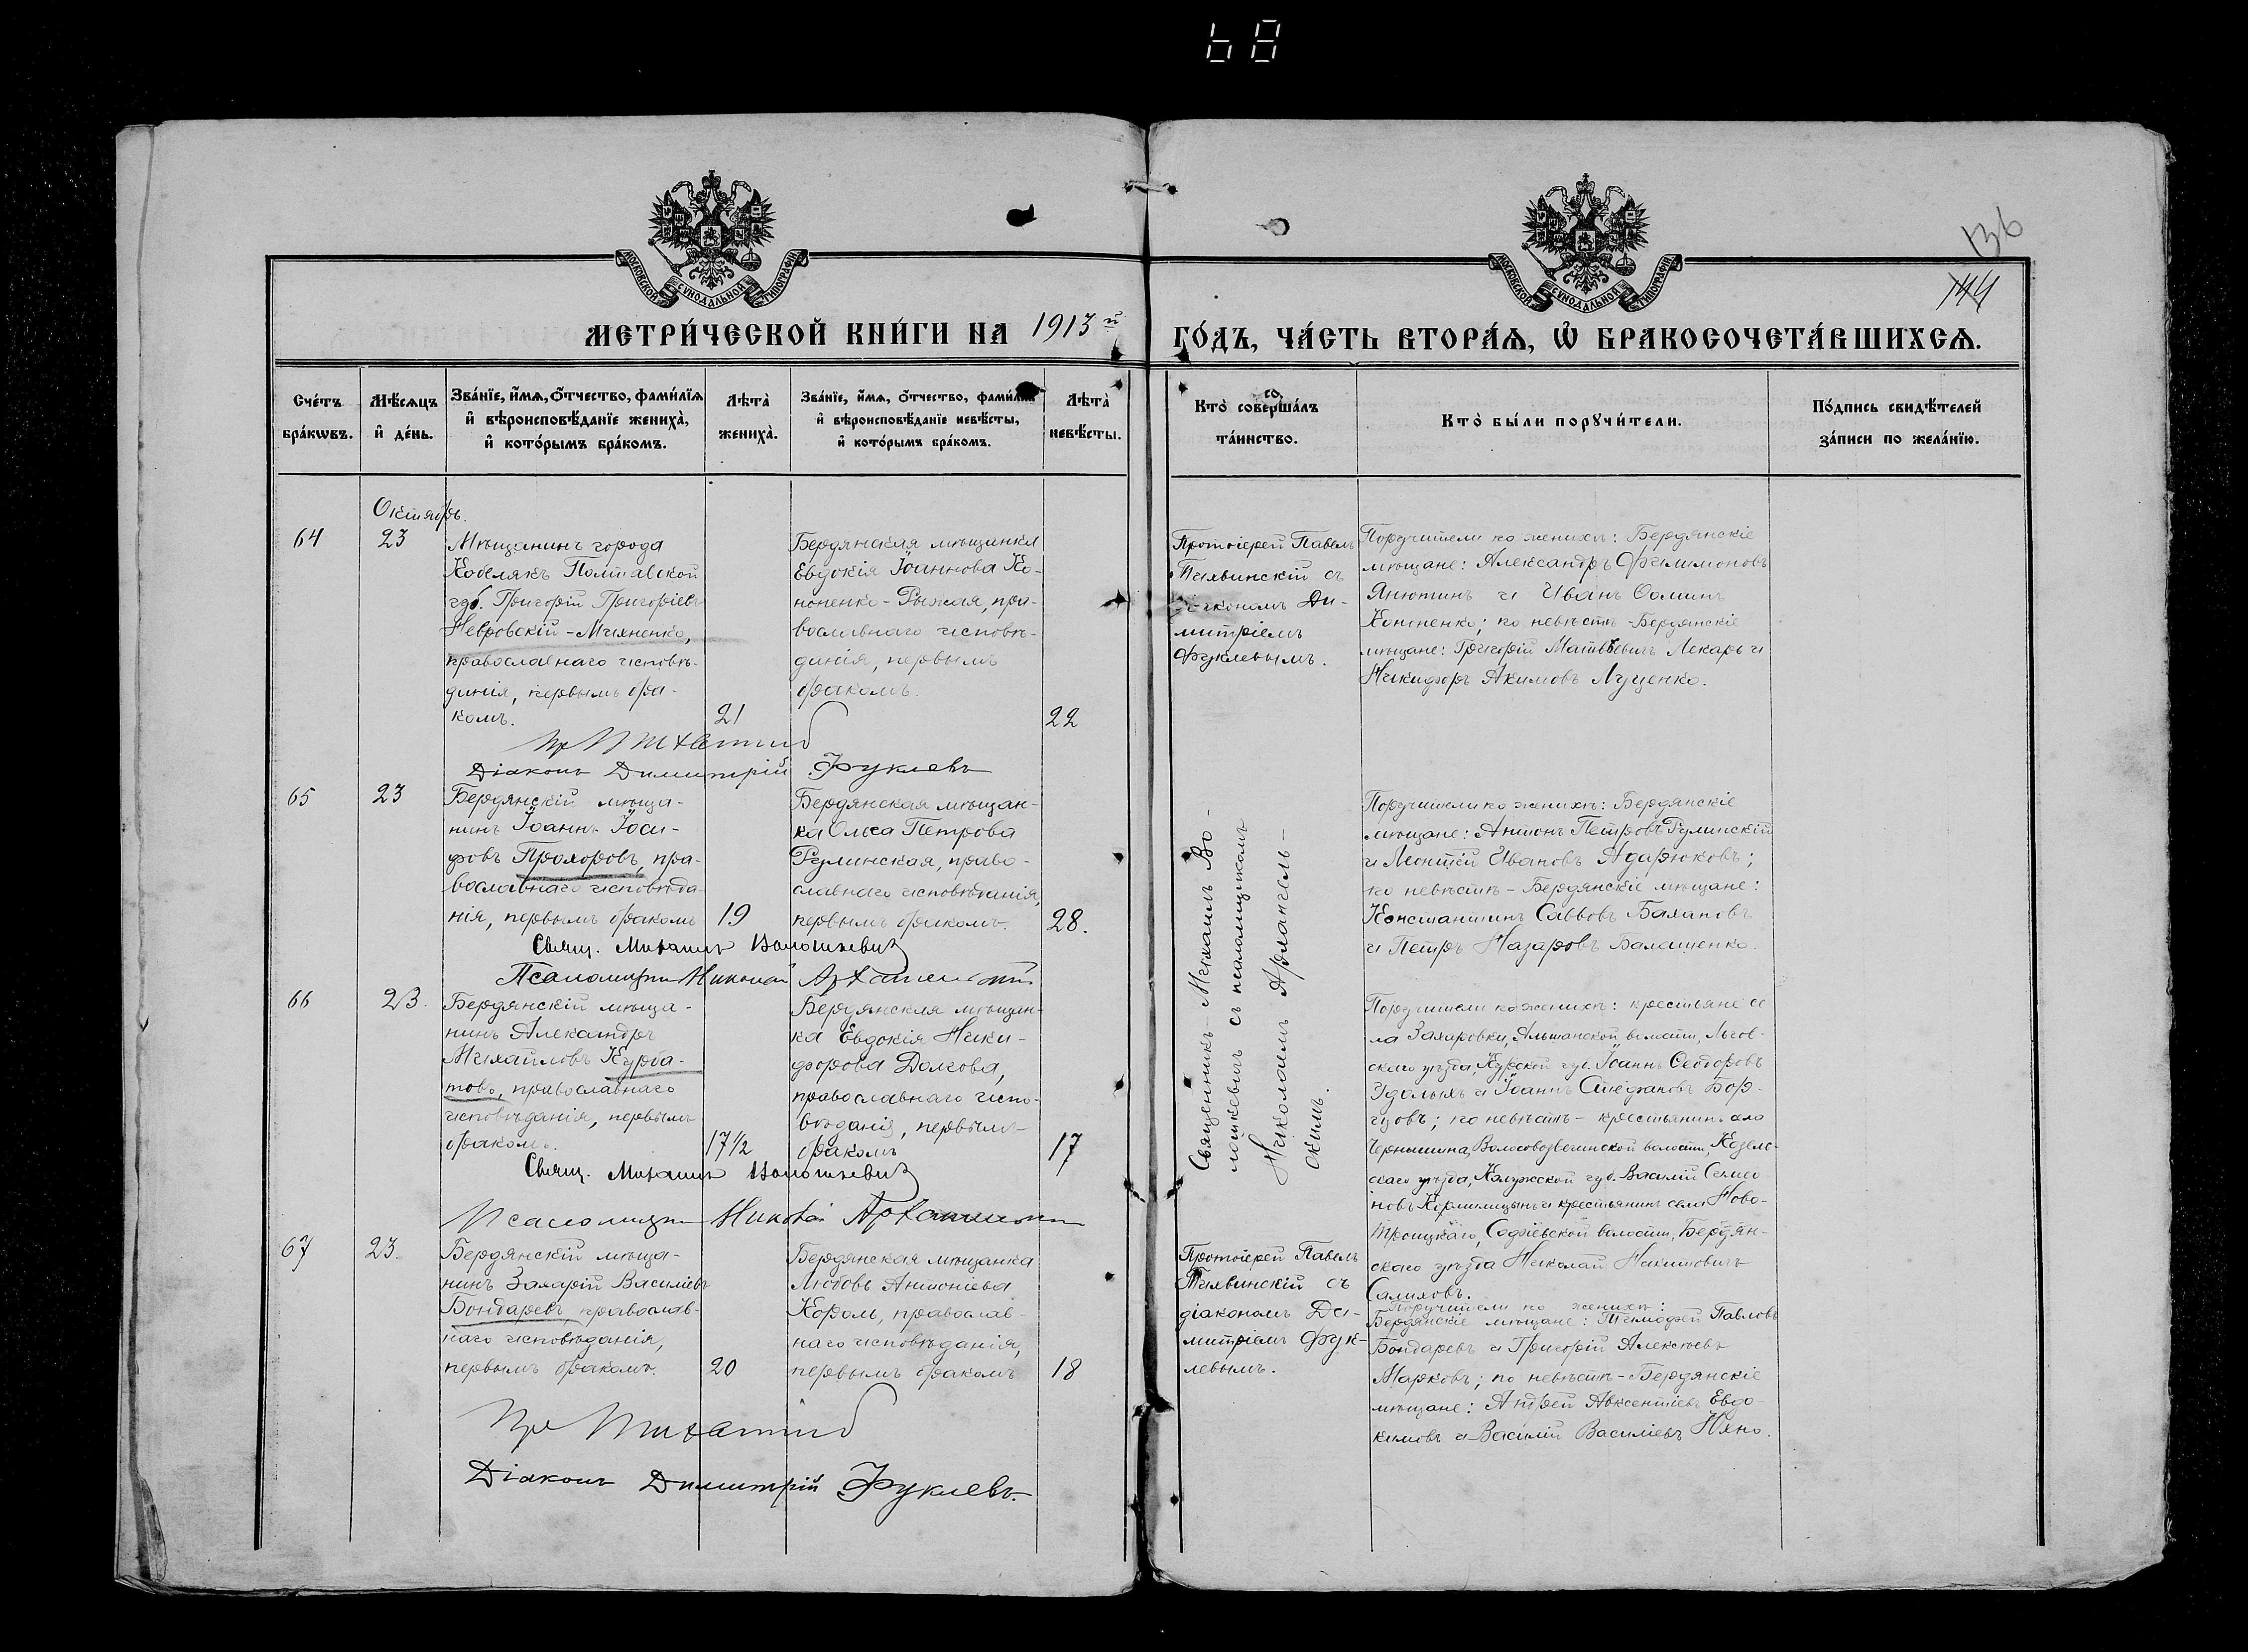 68
136
144
МОСКОВСКОЙ СУНОДАЛЬНОЙ ТИПОГРАФІИ
МОСКОВСКОЙ СУНОДАЛЬНОЙ ТИПОГРАФІИ
МЕТРИ́ЧЕСКОЙ КНИ́ГИ НА 1913 й
ГО́ДЪ, ЧА́СТЬ ВТОРА́Ѧ, Ѡ҆ БРАКОСОЧЕТА́ВШИХСѦ.
Сче́тъ
бра́кѡвъ.
Мѣ́сѧцъ
и҆ де́нь.
Зва́нїе, и҆́мѧ, ѻ҆́тчество, фами́лїѧ
и҆ вѣроисповѣ́данїе жениха̀,
и҆ кото́рымъ бра́комъ.
Лѣта̀
жениха̀.
Зва́нїе, и҆́мѧ, ѻ҆́тчество, фами́лїѧ
и҆ вѣроисповѣ́данїе невѣ́сты,
и҆ кото́рымъ бра́комъ.
Лѣта̀
невѣ́сты.
Кто̀ соверша́лъ
та́инство.
Кто̀ бы́ли порꙋчи́тели.
По́дпись свидѣ́телей
за́писи по жела́нїю.
Октябрь.
64
23
Мѣщанинъ города
Кобелякъ Полтавской
губ. Григорій Григоріевъ
Невровскій-Михненко,
православнаго исповѣ-
данія, первымъ бра-
комъ.
21
Бердянская мѣщанка
Евдокія Іоаннова Ко-
ноненко-Рыжая, пра-
вославнаго исповѣ-
данія, первымъ
бракомъ.
22
Протоіерей Павелъ
Тихвинскій съ
діакономъ Ди-
митріемъ
Фуклевымъ.
Поручители по женихѣ: Бердянскіе
мѣщане: Александръ Филимоновъ
Янютинъ и Иванъ Ѳоминъ
Кононенко; по невѣстѣ-Бердянскіе
мѣщане: Григорій Матвѣевъ Лекарь и
Никифоръ Акимовъ Луценко.
Діаконъ Димитрій Фуклевъ
65
23
Бердянскій мѣща-
нинъ Іоаннъ Іоси-
фовъ Прохоровъ, пра-
вославнаго исповѣда-
нія, первымъ бракомъ
19
Бердянская мѣщан-
ка Ольга Петрова
Румянская, право-
славнаго исповѣданія,
первымъ бракомъ.
28.
Священникъ Михаилъ Во-
лошкевичъ съ псаломщикомъ
Николаемъ Архангель-
скимъ.
Поручители по женихѣ: Бердянскіе
мѣщане: Антонъ Петровъ Руминскій
и Леонтій Ивановъ Адарюковъ;
по невѣстѣ - Бердянскіе мѣщане:
Константинъ Саввовъ Балановъ
и Петръ Назаровъ Балашенко.
Свящ. Михаилъ Волошкевичъ
Псаломщикъ Николай Архангельскій
66
23.
Бердянскій мѣща-
нинъ Александръ
Михайловъ Курба-
товъ, православнаго
исповѣданія, первымъ
бракомъ.
17½
Бердянская мѣщан-
ка Евдокія Ники-
форова Долгова,
православнаго испо-
вѣданія, первымъ
бракомъ
17
Поручители по женихѣ: крестьяне се
ла Захаровки, Ольшанской волости, Льгов-
скаго уѣзда, Курской губ. Іоаннъ Ѳеодоровъ
и Іоаннъ Стефановъ Бор-
цовъ; по невѣстѣ - крестьянинъ села
Чернышина, волости, Козель-
скаго уѣзда, Калужской губ. Василій Семео
новъ Кормилицынъ и крестьянинъ села Ново-
Троицкаго, Софіевской волости, Бердян-
скаго уѣзда Николай
Салиховъ.
Свящ. Михаилъ Волошкевичъ
Псаломщикъ Николай Архангельскій
67
23.
Бердянскій мѣща-
нинъ Захарій Василіевъ
Бондаревъ, православ-
наго исповѣданія,
первымъ бракомъ.
20
Бердянская мѣщанка
Любовь Антоніева
Король, православ-
наго исповѣданія,
первымъ бракомъ
18
Протоіерей Павелъ
Тихвинскій съ
діакономъ Ди-
митріемъ Фук-
левымъ.
Поручители по женихѣ:
Бердянскіе мѣщане: Тимофей Павловъ
Бондаревъ и Григорій Алексѣевъ
Марковъ; по невѣстѣ - Бердянскіе
мѣщане: Андрей Авксентіевъ Евдо
кимовъ и Василій Василіевъ
Діаконъ Димитрій Фуклевъ.